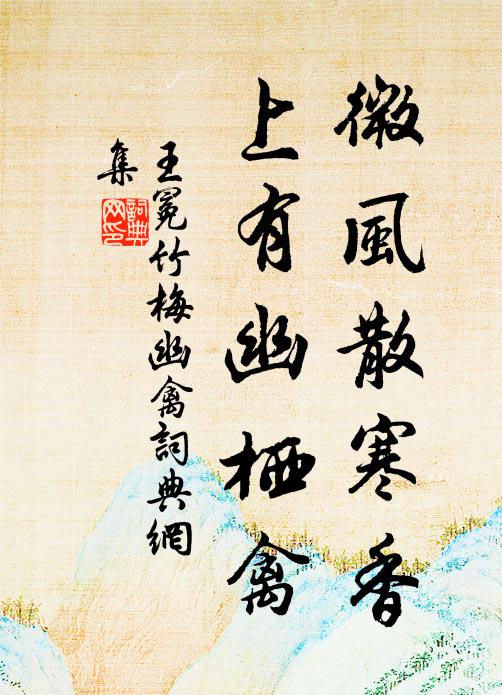 微風散寒香
上有幽栖禽
王冕竹梅幽禽詞典網
集
詞典
网印